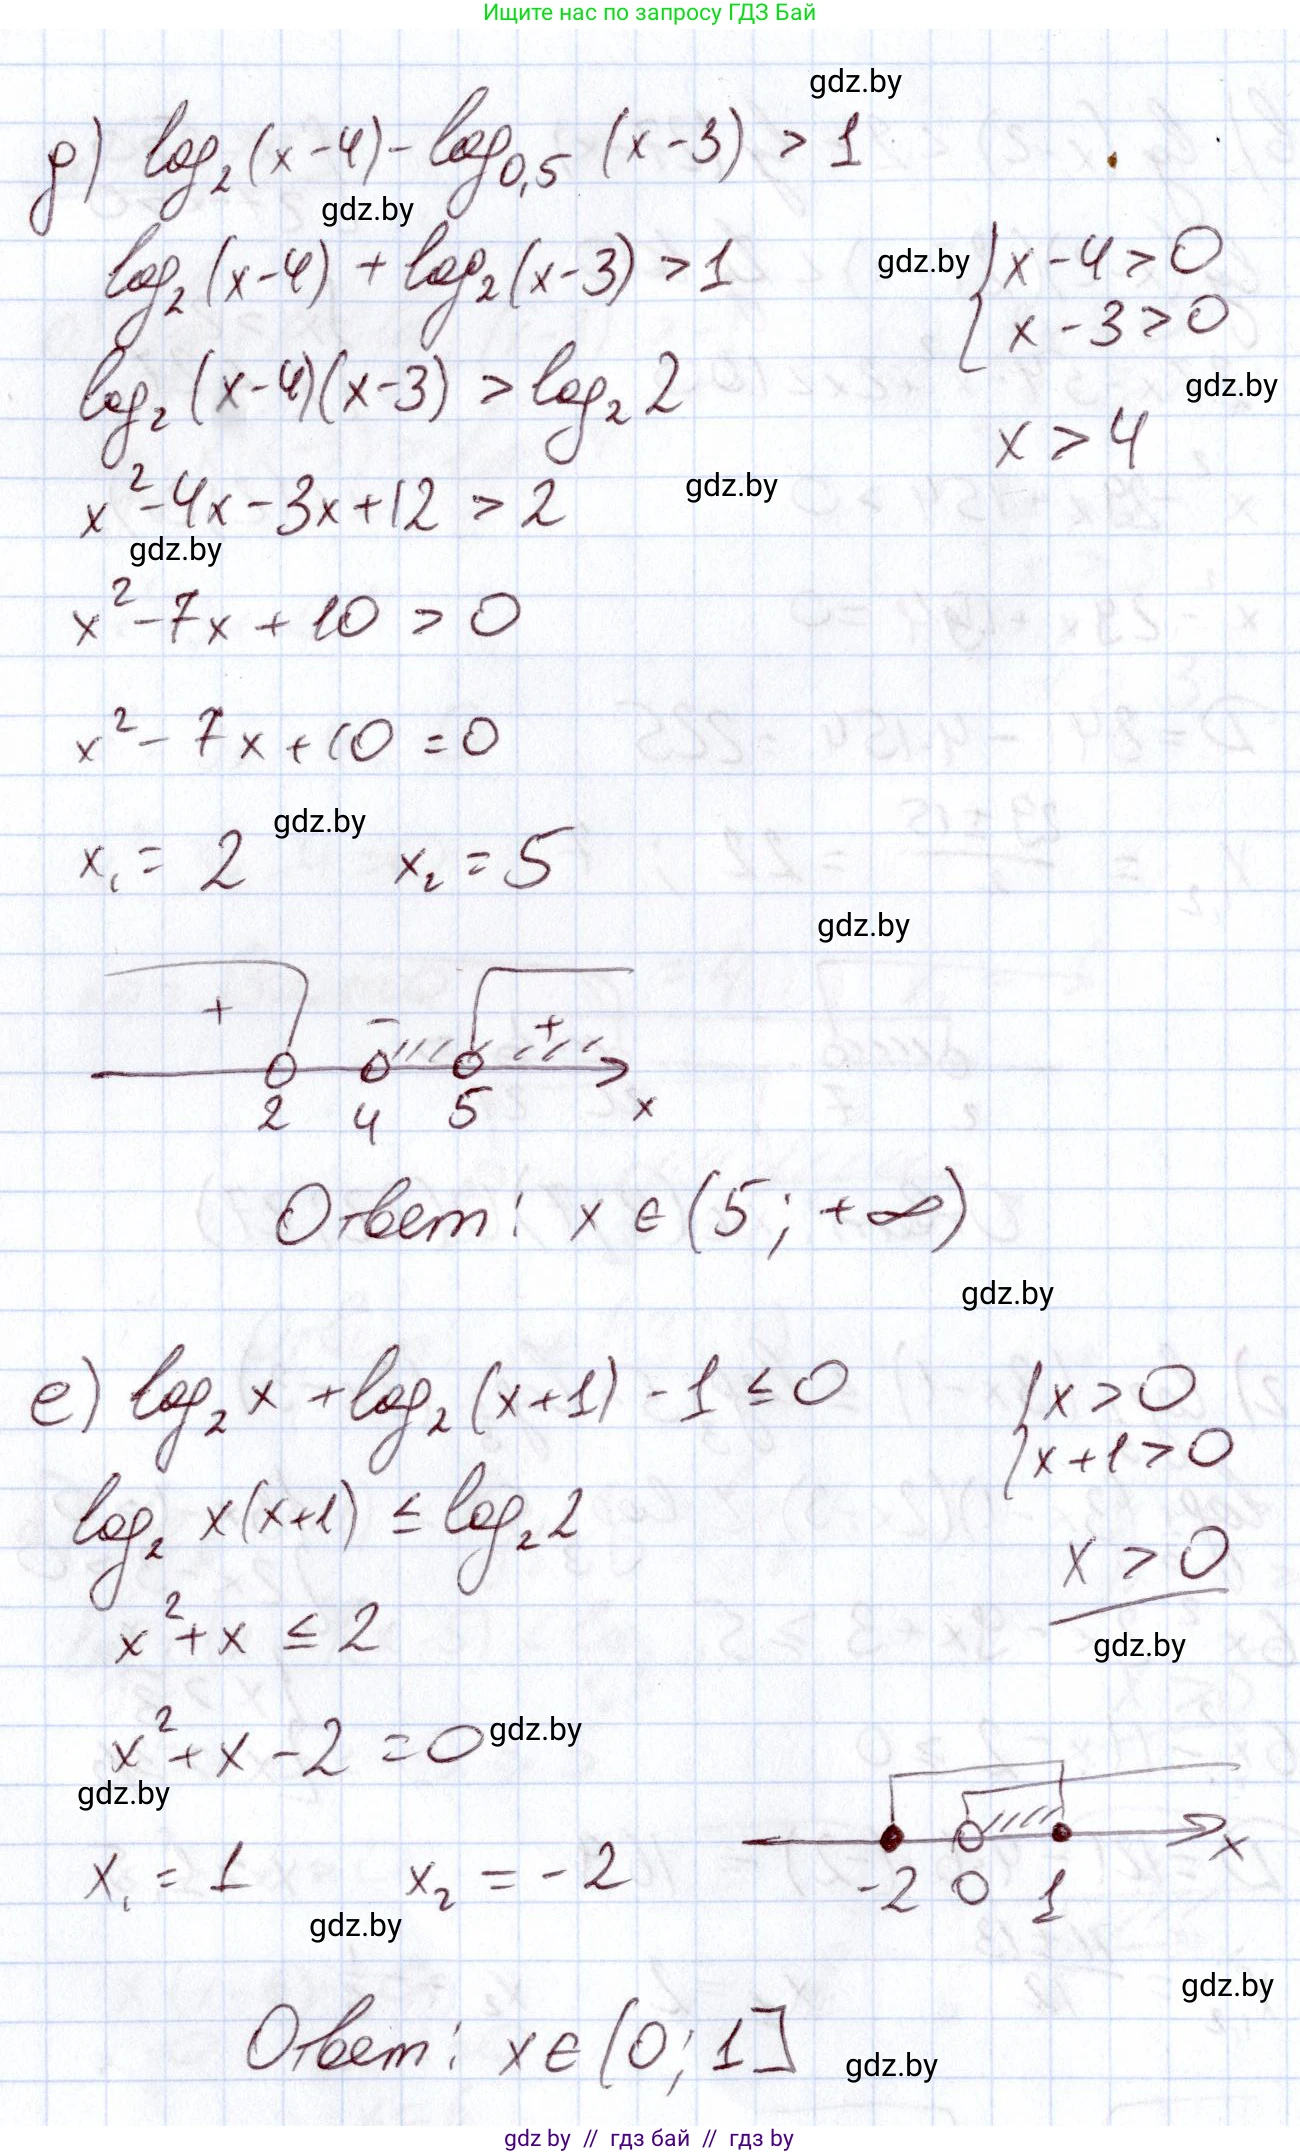 Ищите нас по запросу ГДЗ Бай
gdz.by
д) log₂(x-4) - log₀,₅(x-3) > 1
gdz.by
log₂(x-4) + log₂(x-3) > 1
gdz.by
{ x-4>0
x-3>0
log₂(x-4)(x-3) > log₂2
gdz.by
x > 4
x²-4x-3x+12 > 2
gdz.by
gdz.by
x²-7x+10 > 0
x²-7x+10=0
gdz.by
x₁=2 x₂=5
gdz.by
+ - +
2 4 5 x
Ответ: x∈(5; +∞)
gdz.by
е) log₂x + log₂(x+1) - 1 ≤ 0
{ x>0
x+1>0
log₂ x(x+1) ≤ log₂2
x > 0
x²+x ≤ 2
gdz.by
x²+x-2=0
gdz.by
gdz.by
x₁=1 x₂=-2
-2 0 1 x
gdz.by
gdz.by
Ответ: x∈(0; 1]
gdz.by
gdz by // гдз бай // гдз by